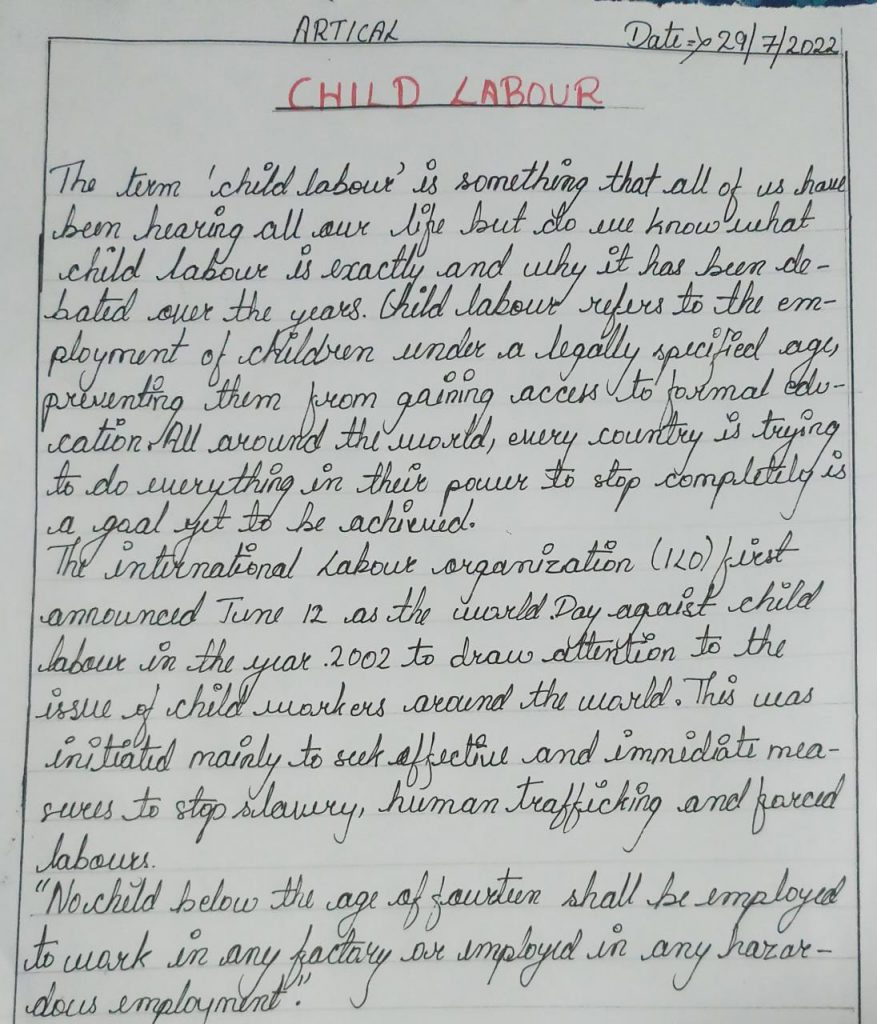 ARTICAL
Date⇒ 29/7/2022
CHILD LABOUR
The term 'child labour' is something that all of us have
been hearing all our life but do we know what
child labour is exactly and why it has been de-
bated over the years. Child labour refers to the em-
ployment of children under a legally specified age,
preventing them from gaining access to formal edu-
cation. All around the world, every country is trying
to do everything in their power to stop completely is
a goal yet to be achieved.
The international Labour organization (ILO) first
announced June 12 as the world Day agaist child
labour in the year .2002 to draw attention to the
issue of child workers around the world. This was
initiated mainly to seek effective and immediate mea-
sures to stop slavery, human trafficking and forced
labours.
"No child below the age of fourteen shall be employed
to work in any factory or employed in any hazar-
dous employment."